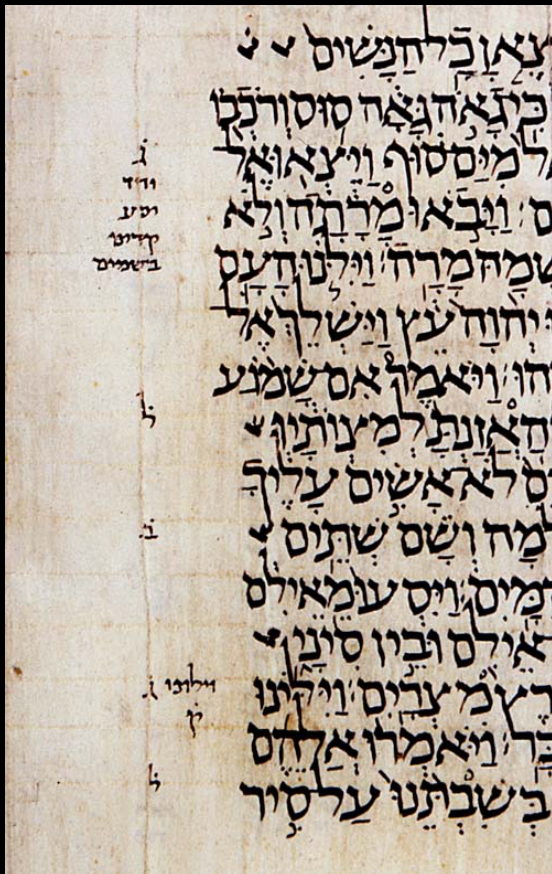 צֶאןָ כָל הַנָּשִׁים
כִּי גָאֹה גָּאָה סוּס וְרֹכְבוֹ
ל מִיַּם סוּף וַיֵּצְאוּ אֶל
ם׃ וַיָּבֹאוּ מָרָתָה וְלֹא
שְׁמָהּ מָרָה׃ וַיִּלֹּנוּ הָעָם
יְהוָה עֵץ וַיַּשְׁלֵךְ אֶל
הוּ׃ וַיֹּאמֶר אִם שָׁמוֹעַ
הַאֲזַנְתָּ לְמִצְוֹתָיו
ם לֹא אָשִׂים עָלֶיךָ
למָה וְשָׁם שְׁתֵּים
מָּיִם׃ וַיִּסְעוּ מֵאֵילִם
אֵילִם וּבֵין סִינָי
רֶץ מִצְרָיִם׃ וַיִּלִּינוּ
בָּר׃ וַיֹּאמְרוּ אֲלֵהֶם
בְּשִׁבְתֵּנוּ עַל סִיר
ג
בשמים
ל
ב
וילונו ג
ק
ל